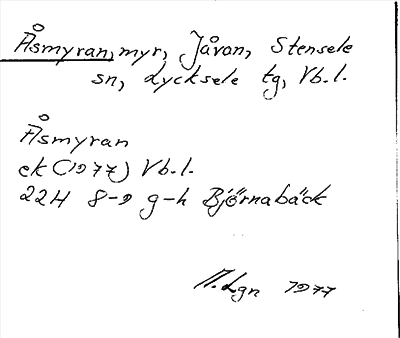 Åsmyran, myr, Jåvan, Stensele
sn, Lycksele tg, Vb.l.
Åsmyran
ek (1977) Vb.l.
22H 8-9 g-h Björnabäck
1977